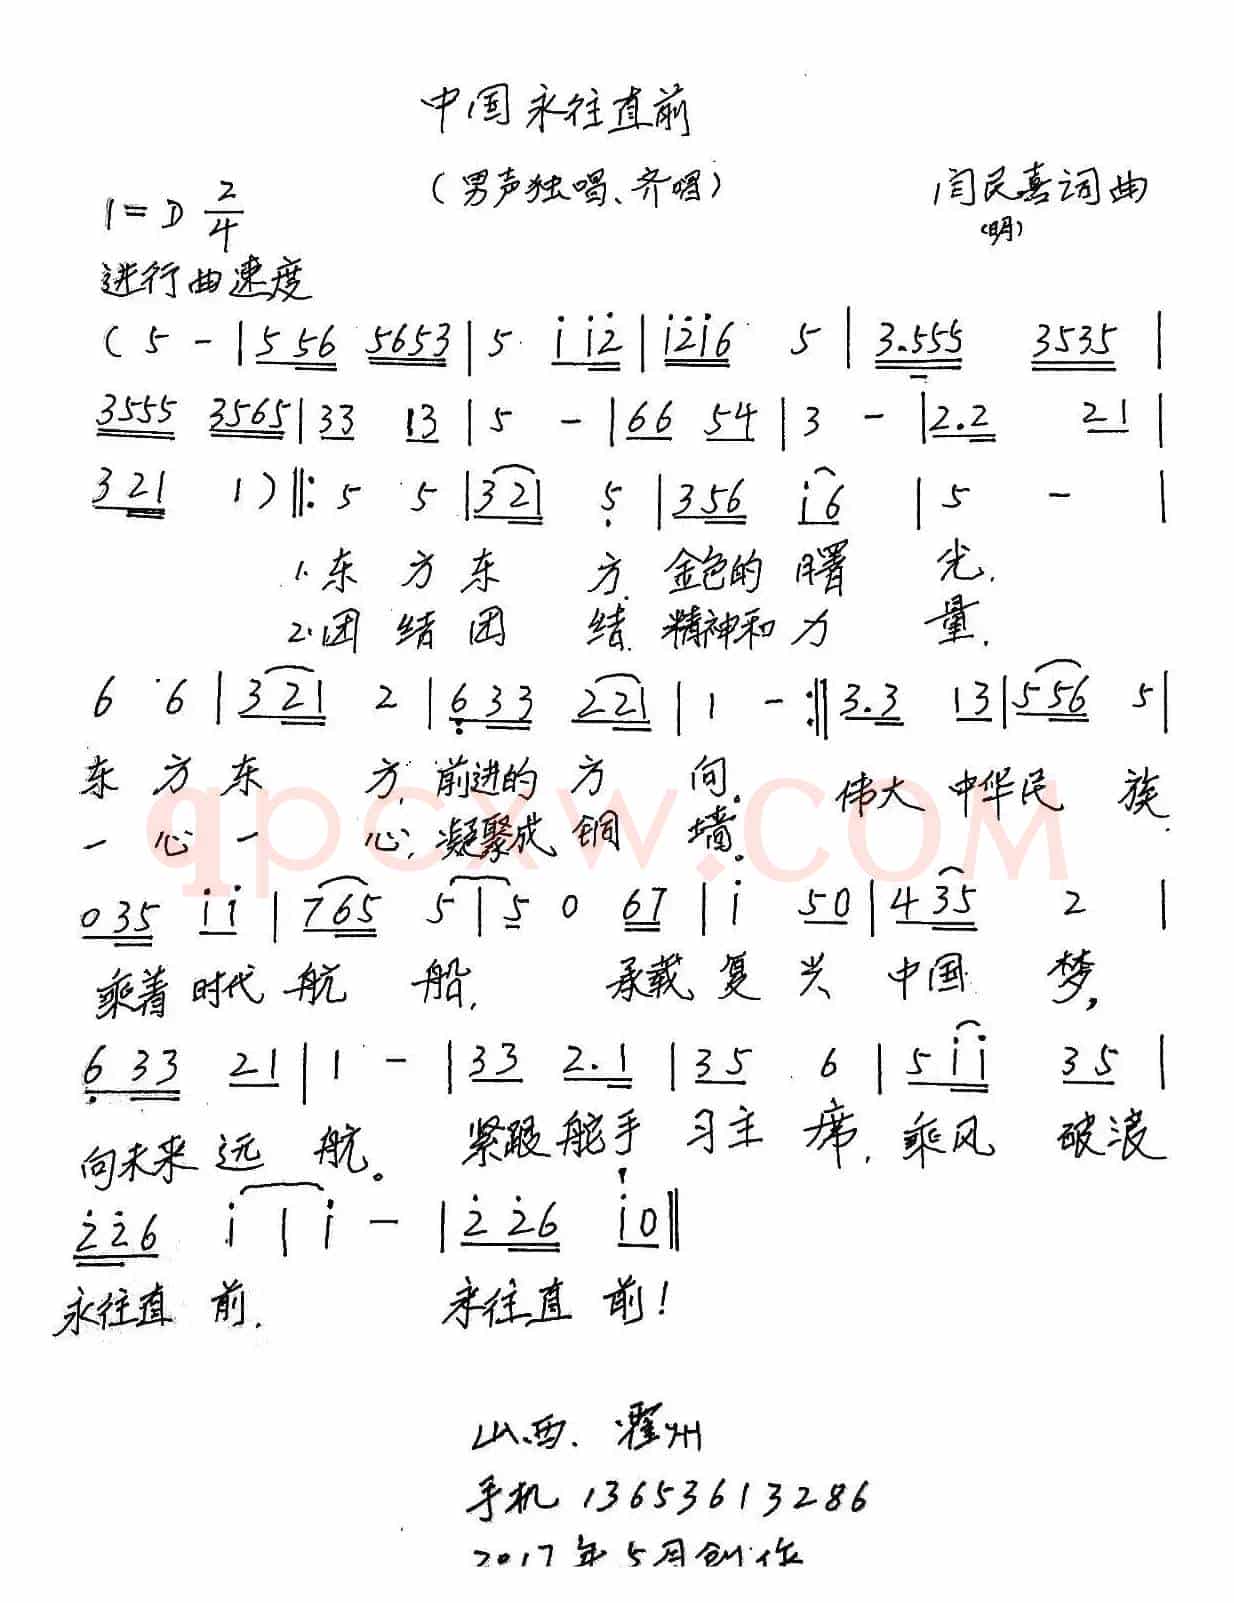 中国永往直前
(男声独唱、齐唱)
闫民喜词曲
(明)
1=D 2/4
进行曲速度
(5 - | 5 56 5653 | 5 i i2 | i2i6 5 | 3.555 3535 |
3555 3565 | 33 13 | 5 - | 66 54 | 3 - | 2.2 21 |
3 21 1) ‖: 5 5 | 3 21 5 | 3 56 i6 | 5 - |
1.东方东方.金色的曙光.
2.团结团结.精神和力量.
6 6 | 3 21 2 | 6 33 2 21 | 1 - :‖ 3.3 13 | 5 56 5 |
东方东方,前进的方向。伟大中华民族
一心一心,凝聚成铜墙。
qpcxw.COM
0 35 i i | 7 65 5 | 5 0 67 | i 50 | 4 35 2 |
乘着时代航船,承载复兴中国梦,
6 33 21 | 1 - | 33 2.1 | 35 6 | 5 i i 35 |
向未来远航。紧跟舵手习主席,乘风破浪
2 2 6 i | i - | 2 26 i0 ‖
永往直前,永往直前!
山西.霍州
手机 13653613286
2017年5月创作